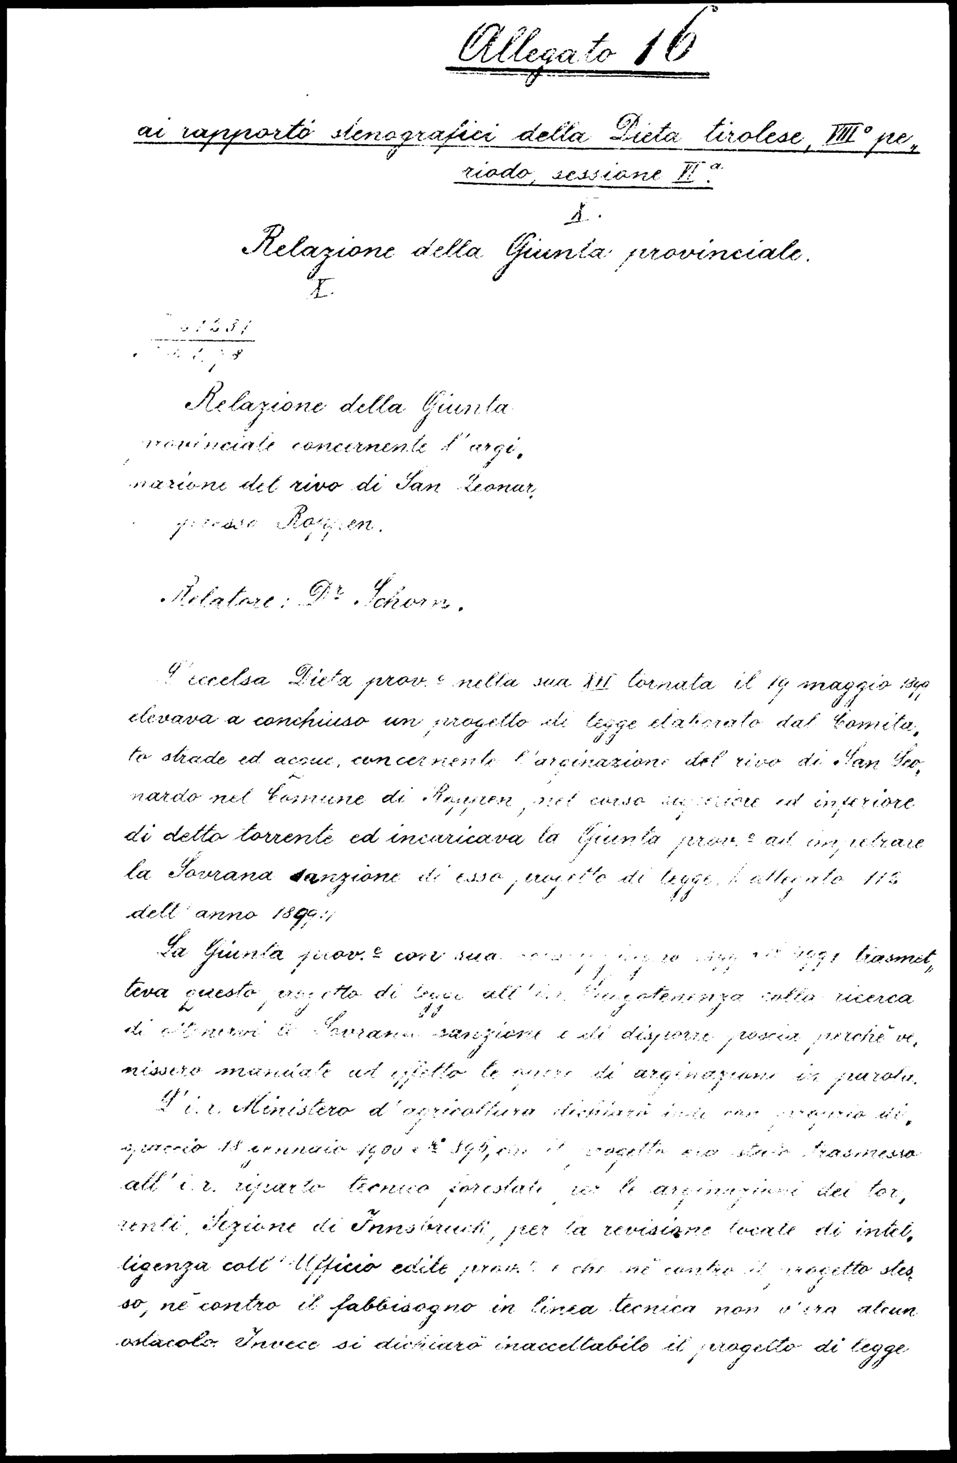 Allegato 16
ai rapporto stenografici della Dieta tirolese, VIII° pe„
riodo, sessione VIª.
X.
Relazione della Giunta provinciale.
X.
Relazione della Giunta
provinciale concernente l'argi„
nazione del rivo di San Leonar„
presso Roppen.
Relatore: Dr. Schorn.
L'eccelsa Dieta prov.e nella sua XII tornata il 19 maggio 1899
elevava a conchiuso un progetto di legge elaborato dal Comita„
to strade ed acque, concernente l'arginazione del rivo di San Leo„
nardo nel Comune di Roppen, nel corso superiore ed inferiore
di detto torrente ed incaricava la Giunta prov.e ad impetrare
la Sovrana sanzione di esso progetto di legge, allegato
dell'anno 1899.
La Giunta prov.e con sua trasmet„
teva questo progetto di legge all'i.r. Luogotenenza colla ricerca
di ottenervi la Sovrana sanzione e di disporre poscia perchè ve„
nissero mandate ad effetto le opere di arginazione in parola.
L'i.r. Ministero d'agricoltura dichiarò con proprio di„
spaccio 18 gennaio 1900 il progetto era stato trasmesso
all'i.r. riparto tecnico forestale per le arginazioni dei tor„
renti, Sezione di Innsbruck, per la revisione locale di intel„
ligenza coll'Ufficio edile prov.e e che nè contro il progetto stes„
so, nè contro il fabbisogno in linea tecnica non v'era alcun
ostacolo. Invece si dichiarò inaccettabile il progetto di legge